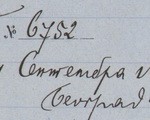 № 6752
Септембра
Београд